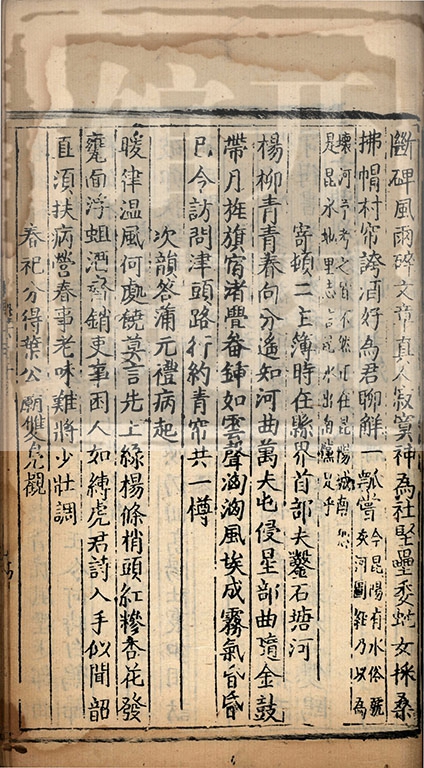 斷碑風雨碎文章真人寂寞神為社堅壘委蛇女採桑
拂帽村帘誇酒好為君聊解一瓢嘗今昆陽有水俗號
是昆水地里志言昆水出南
寄頓二主簿時在縣界首部夫鑿石塘河
楊柳青青春向分遙知河曲萬夫屯侵星部曲隨金鼓
帶月旌旗宿渚畚鍤如雲聲洶洶風埃成霧氣昏昏
已令訪問津頭路行約青帘共一樽
次韻答蒲元禮病起
暖律溫風何處饒莫言先上綠楊條梢頭紅糝杏花發
甕面浮蛆酒齊銷吏事困人如縛虎君詩入手似聞韶
直須扶病營春事老味難將少壯調
春祀分得葉公廟雙鳧觀